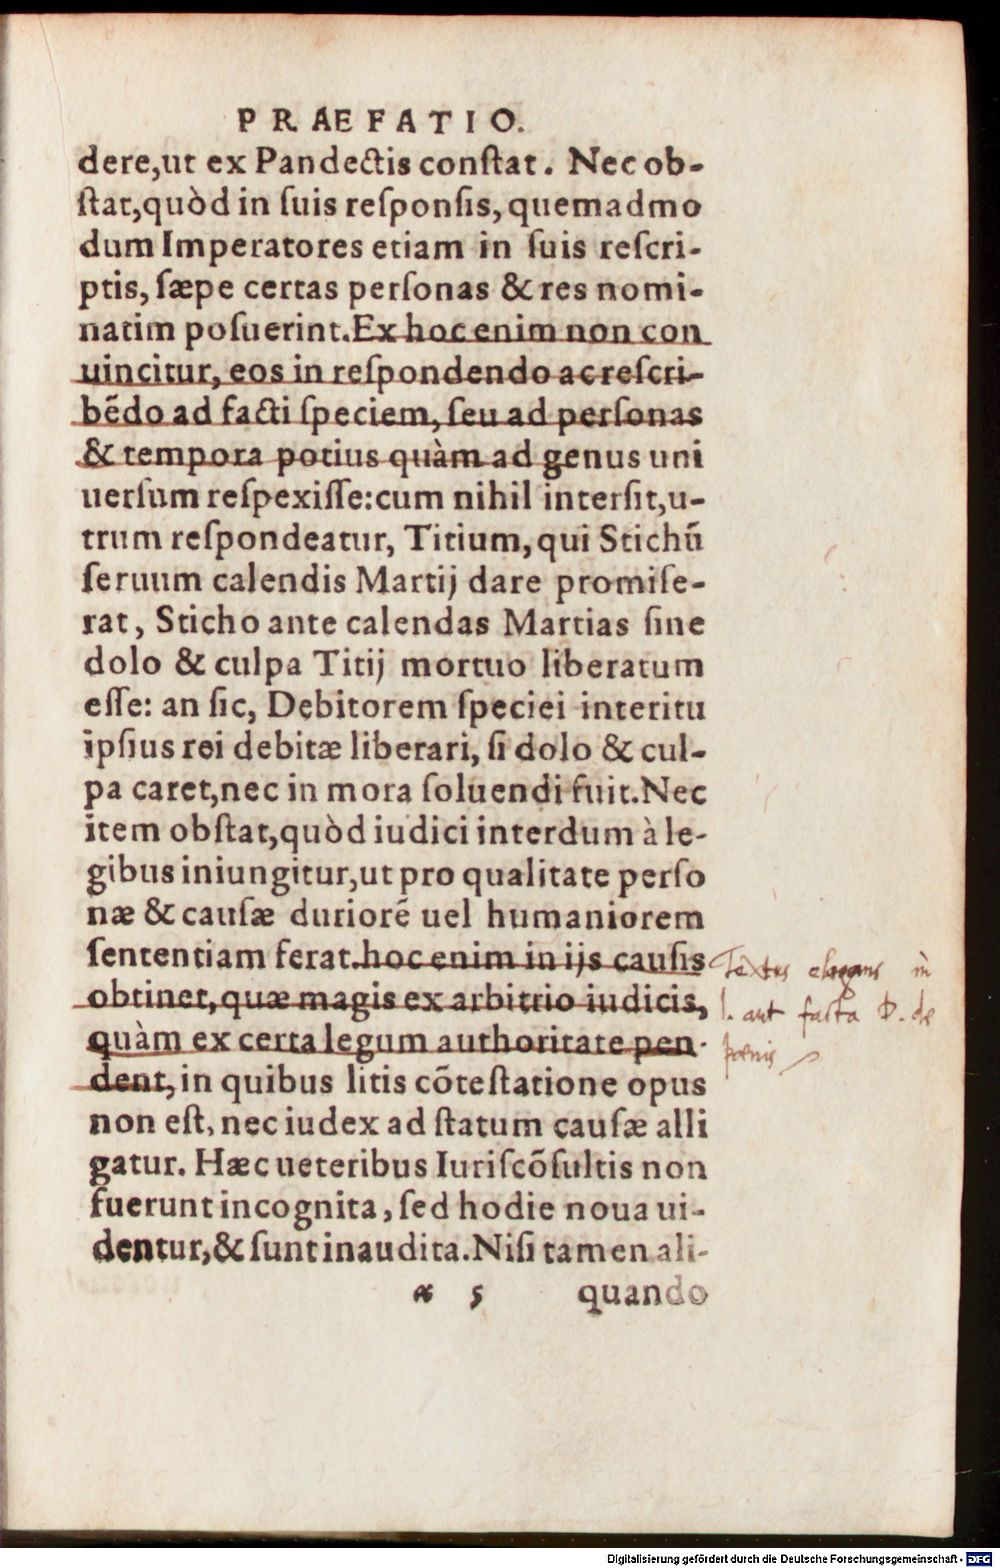 PRAEFATIO.
dere,ut ex Pandectis conſtat. Nec ob-
ſtat,quòd in ſuis reſponſis, quemadmo
dum Imperatores etiam in ſuis reſcri-
ptis, ſæpe certas perſonas & res nomi-
natim poſuerint.Ex hoc enim non con
uincitur, eos in reſpondendo ac reſcri-
bẽdo ad facti ſpeciem, ſeu ad perſonas
& tempora potius quàm ad genus uni
uerſum reſpexiſſe:cum nihil interſit,u-
trum reſpondeatur, Titium, qui Stichũ
ſeruum calendis Martij dare promiſe-
rat, Sticho ante calendas Martias ſine
dolo & culpa Titij mortuo liberatum
eſſe: an ſic, Debitorem ſpeciei interitu
ipſius rei debitæ liberari, ſi dolo & cul-
pa caret,nec in mora ſoluendi fuit.Nec
item obſtat,quòd iudici interdum à le-
gibus iniungitur,ut pro qualitate perſo
næ & cauſæ duriorẽ uel humaniorem
ſententiam ferat.hoc enim in ijs cauſis
obtinet,quæ magis ex arbitrio iudicis,
quàm ex certa legum authoritate pen-
dent,in quibus litis cõteſtatione opus
non eſt, nec iudex ad ſtatum cauſæ alli
gatur. Hæc ueteribus Iuriſcõſultis non
fuerunt incognita, ſed hodie noua ui-
dentur,& ſunt inaudita.Niſi tamen ali-
α 5 quando
Textus elegans in
l. aut facta D. de
pœnis
Digitalisierung gefördert durch die Deutsche Forschungsgemeinschaft - DFG